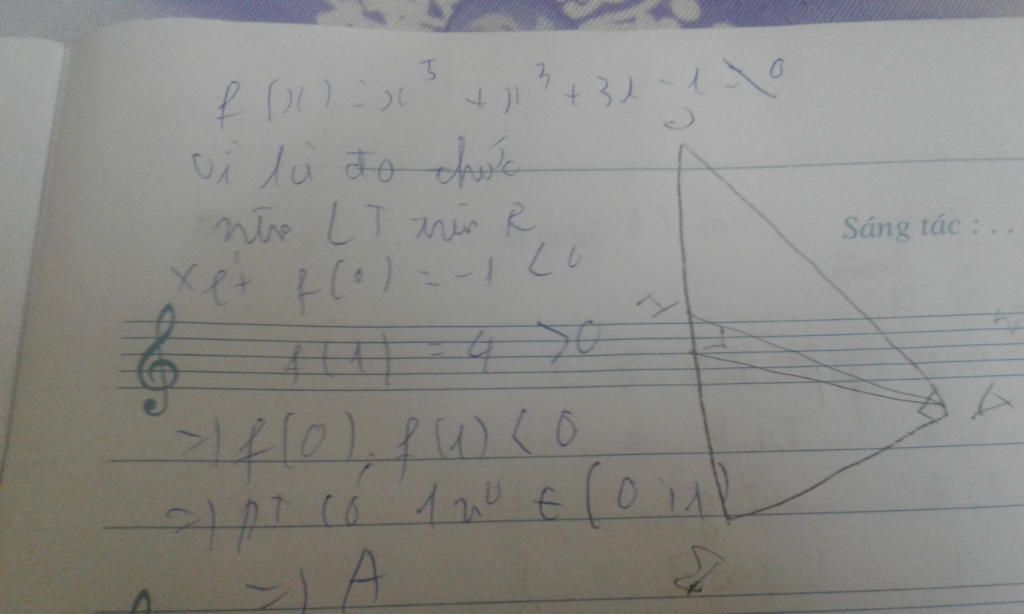 f(x) = x^5 + x^3 + 3x - 1 = 0
vì là đa thức
nên LT trên R
Xét f(0) = -1 < 0
f(1) = 4 > 0
=) f(0). f(1) < 0
=) pT có 1 n^0 ∈ (0; 1)
=) A
Sáng tác : . .
I
A